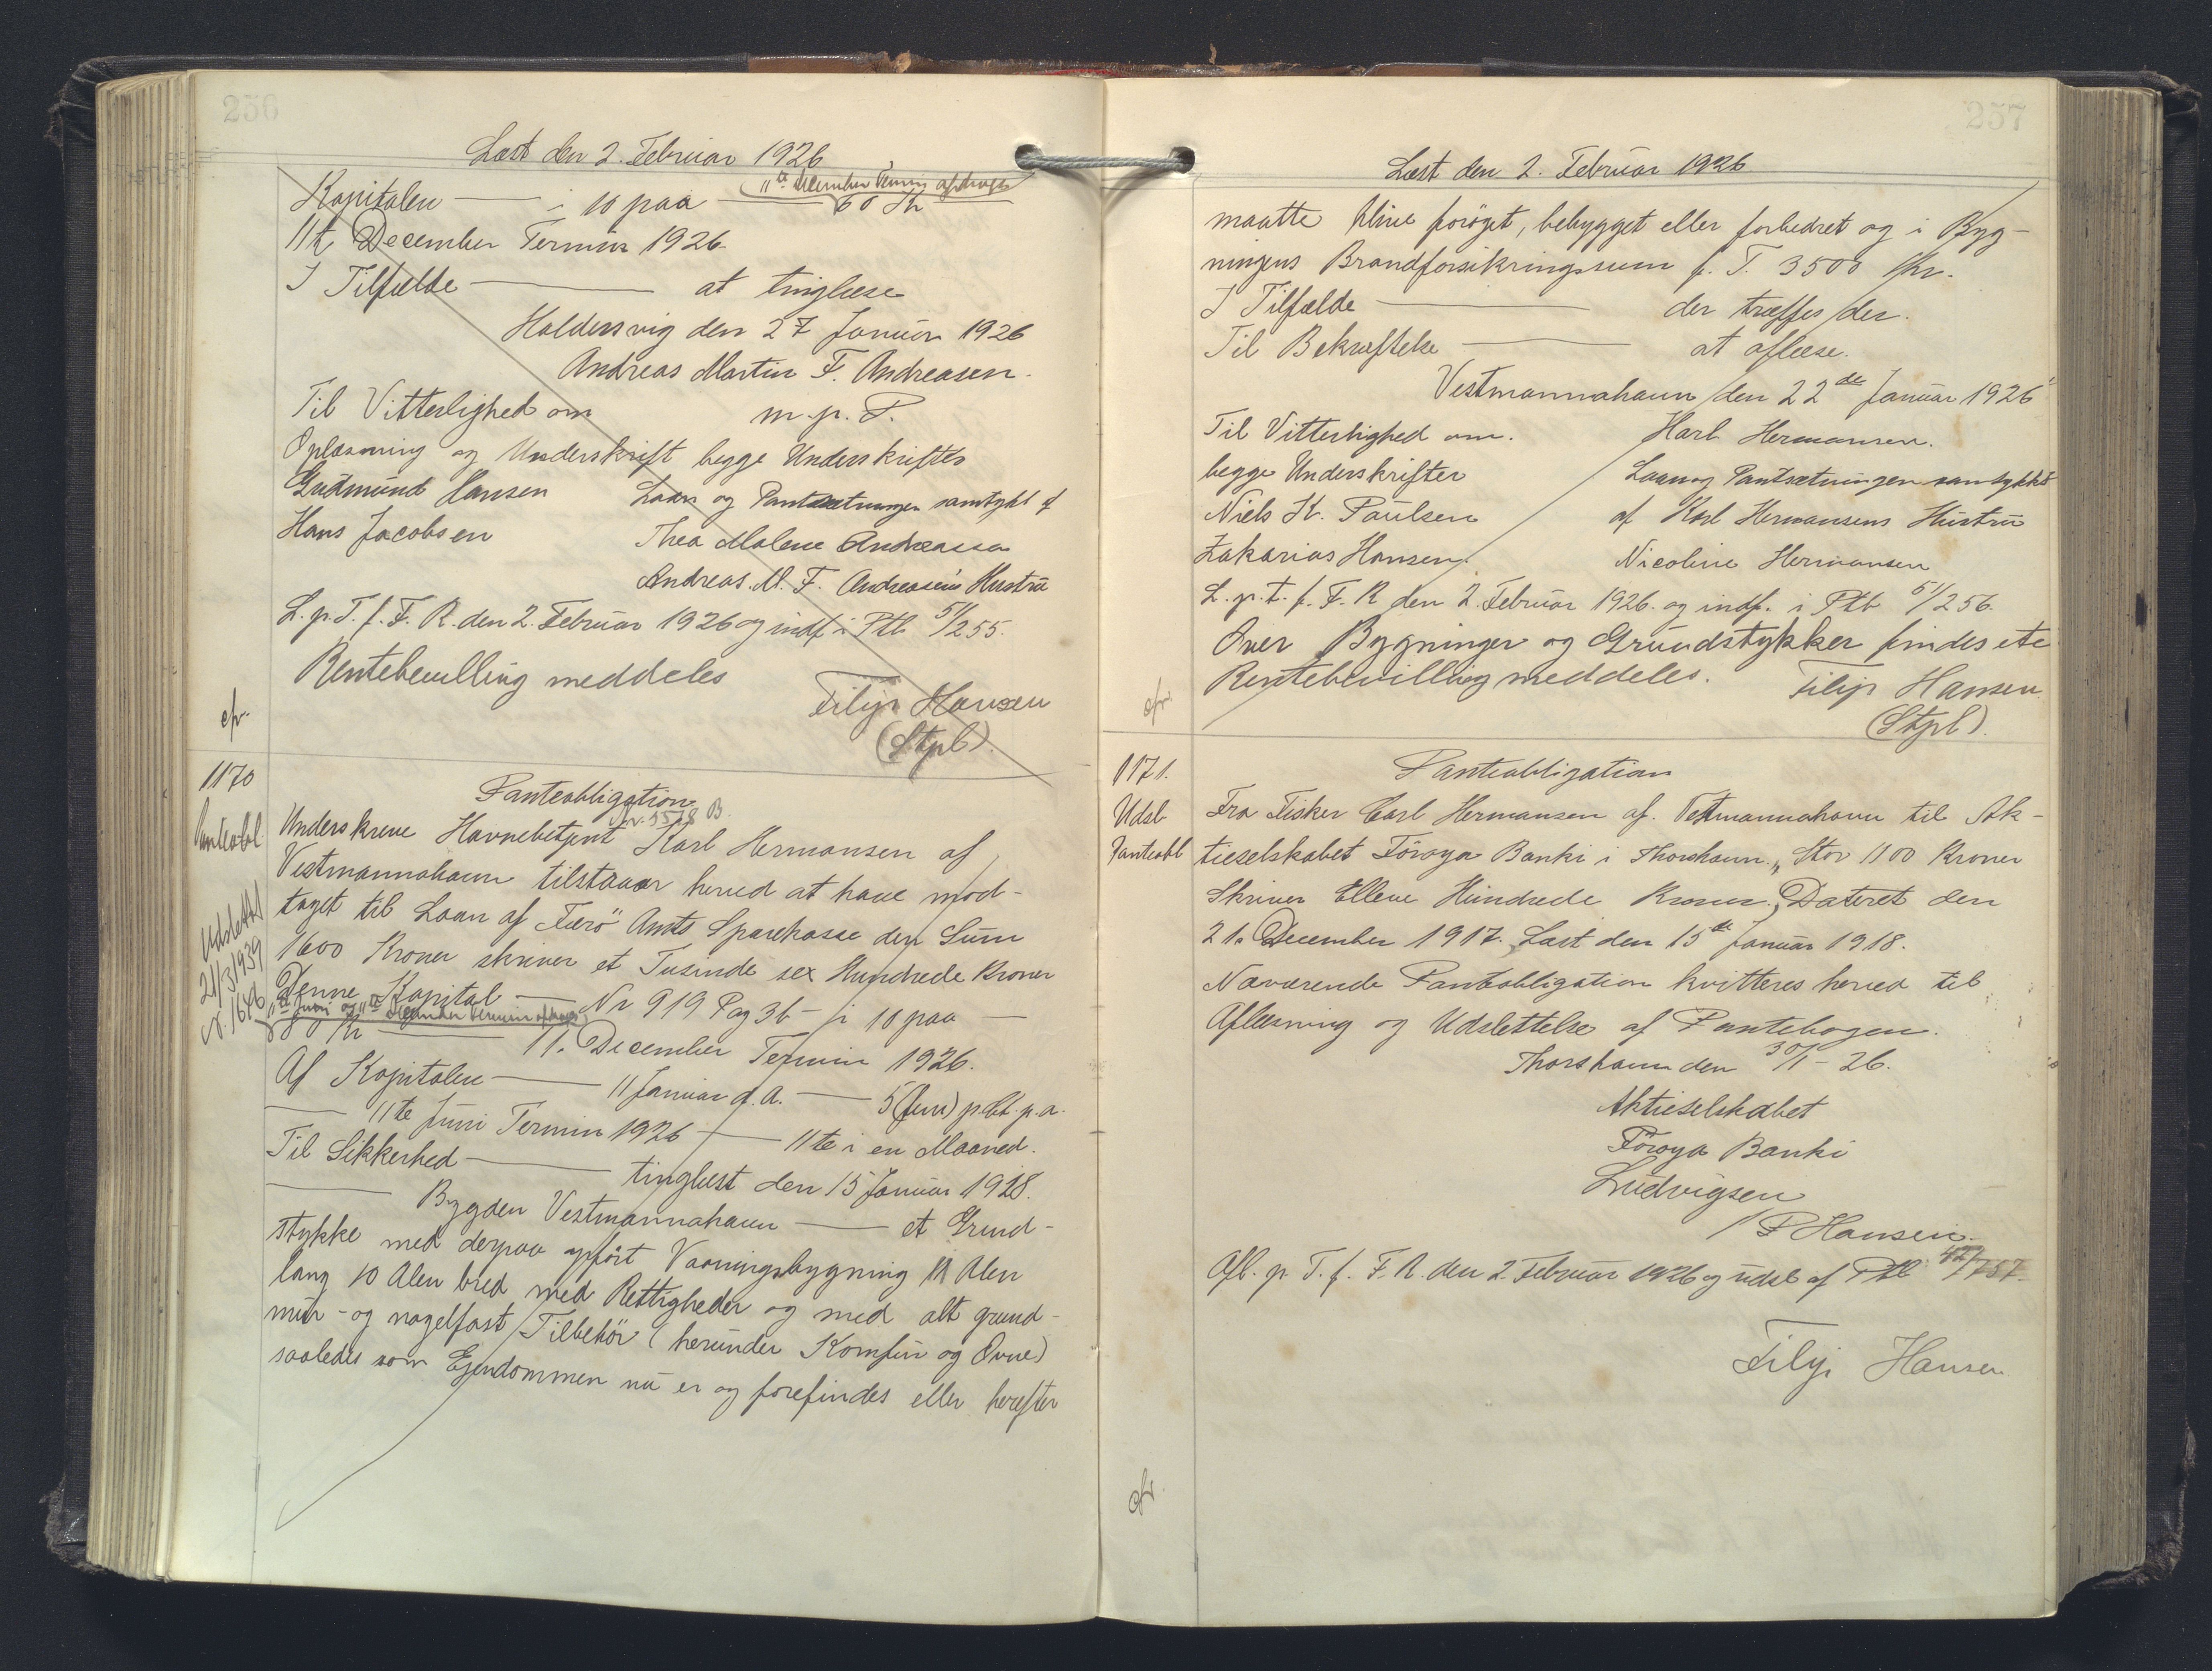 256
Læst den 2. Februar 1926
11te December Termin afdrages
Kapitalen — i 10 paa — 60 Kr
11te December Termin 1926.
I Tilfælde — at tinglæse
Haldersvig den 27 Januar 1926
Andreas Martin F. Andreasen.
Til Vitterlighed om m.p. P.
Oplæsning og Underskrift begge Underskrifter
Gudmund Hansen Laan og Pantsætningen samtykt af
Hans Jacobsen Thea Malene Andreasen
Andreas M. F. Andreasens Hustru
L. p. T. f. F. R. den 2. Februar 1926 og indf. i Ptb 51/255.
Rentebevilling meddeles
Filip Hansen
cfr.
(Stpl).
1170
Panteobligation
Nr. 5518 B.
Panteobl.
Underskrevne Havnebetjent Karl Hermansen af
Vestmannahavn tilstaaar herved at have mod-
taget til Laan af Færö Amts Sparekasse den Sum
1600 Kroner skriver et Tusinde sex Hundrede Kroner
Udslettet
21/3 1939
Nr. 1646
Denne Kapital — Nr 919 Pag 36 — i 10 paa —
11te Juni og 11te December Termin afdrages
80 Kr — 11. December Termin 1926.
Af Kapitalen — 11 Januar d.A. — 5 (fem) p.Ct. p.a.
— 11te Juni Termin 1926 — 11te i en Maaned.
Til Sikkerhed — tinglæst den 15 Januar 1918.
— Bygden Vestmannahavn — et Grund-
stykke med derpaa opført Vaaningsbygning 11 Alen
lang 10 Alen bred med Rettigheder og med alt grund-
mur- og nagelfast Tilbehör (herunder Komfur og Ovne)
saaledes som Ejendommen nu er og forefindes eller herefter
257
Læst den 2. Februar 1926
maatte blive forøget, bebygget eller forbedret og i Byg-
ningens Brandforsikringssum f. T. 3500 Kr.
I Tilfælde — der træffes der.
Til Bekræftelse — at aflæse.
Vestmannahavn den 22de Januar 1926
Til Vitterlighed om. Karl Hermansen.
begge Underskrifter Laan og Pantsætningen samtykkt
Niels K. Paulsen af Karl Hermansens Hustru
Zakarias Hansen. Nicoline Hermansen
L. p. t. f. F. R den 2. Februar 1926. og indf. i Ptb 51/256.
Over Bygninger og Grundstykker findes etc
Rentebevilling meddeles. Filip Hansen
cfr.
(Stpl).
1171.
Panteobligation
Udsl.
Fra Fisker Carl Hermansen af. Vestmannahavn til Ak-
Panteobl
tieselskabet Föroya Banki i Thorshavn „Stor 1100 Kroner
Skriver Elleve Hundrede Kroner. Dateret den
21. December 1917. Læst den 15de Januar 1918.
Nærværende Panteobligation kvitteres herved til
Aflæsning og Udslettelse af Pantebogen.
Thorshavn den 30/1-26.
Aktieselskabet
Föroya Banki
Ludvigsen
/ P Hansen.
Afl. p. T. f. F. R. den 2. Februar 1926 og udsl af Ptb 42/757.
Filip Hansen
cfr.